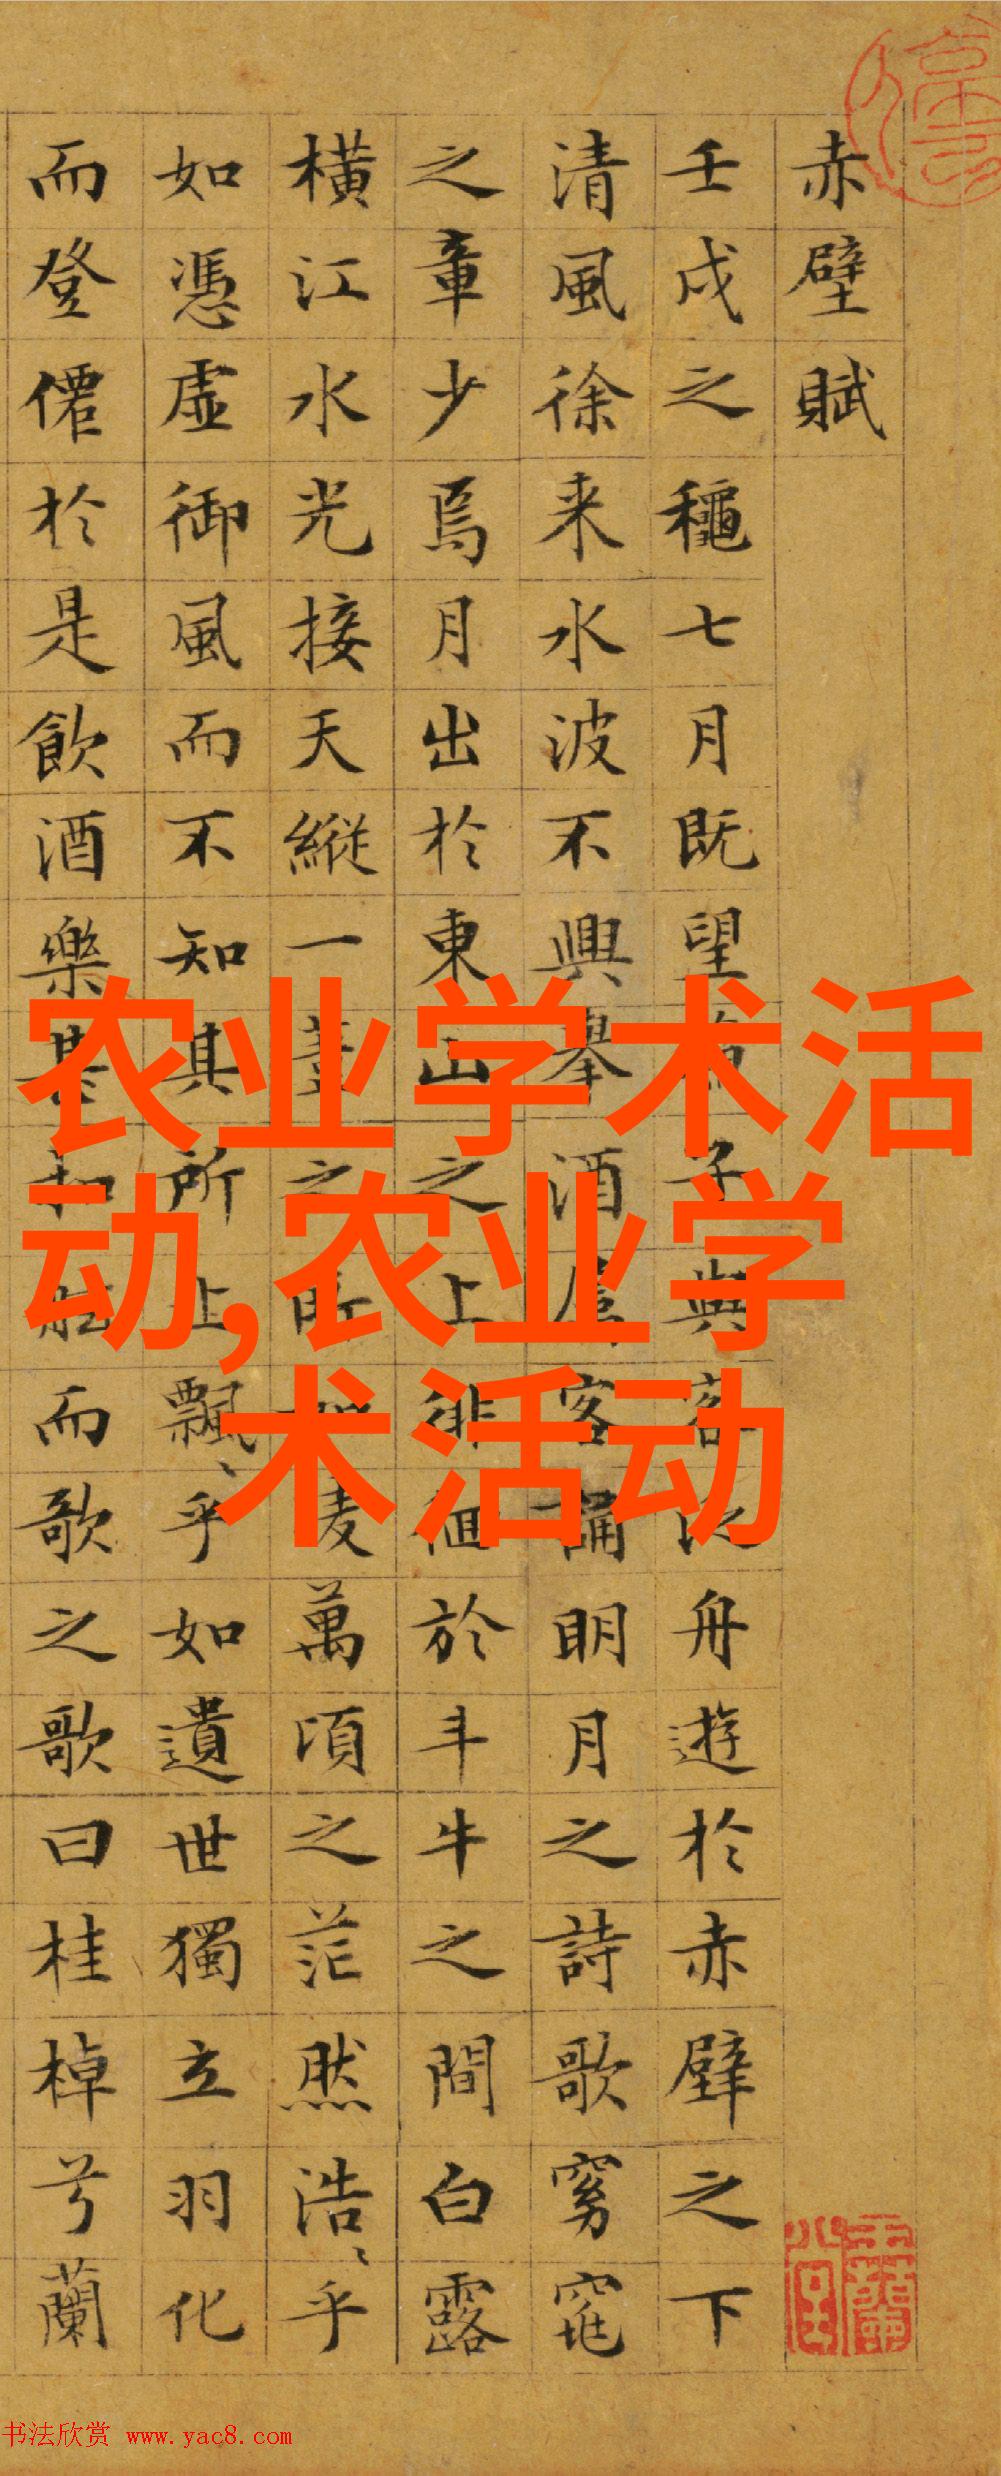 赤壁賦
壬戌之穐七月既望子與客泛舟遊於赤壁之下
清風徐来水波不興舉酒屬客誦眀月之詩歌窈窕
之章少焉月出於東山之上徘徊於斗牛之間白露
橫江水光接天縱一葦之所如凌萬頃之茫然浩、乎
如憑虛御風而不知其所止飄、乎如遺世獨立羽化
而登僊於是飲酒樂甚扣舷而歌之歌曰桂棹兮蘭
农业学术活
动,农业学
术活动
书法欣赏 www.yac8.com